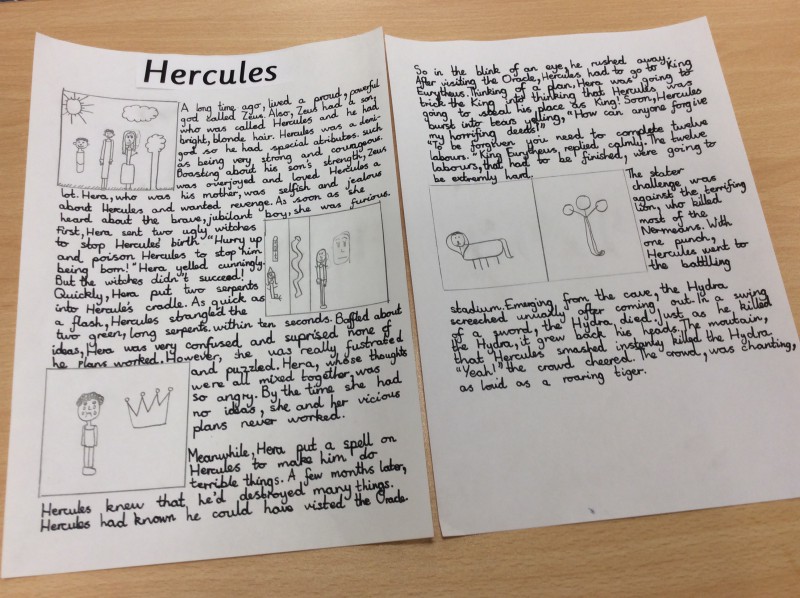 Hercules
A long time ago, lived a proud, powerful
god called Zeus. Also, Zeus had a son,
who was called Hercules and he had
bright, blonde hair. Hercules was a demi-
god so he had special atributes. such
as being very strong and courageous.
Boasting about his son's strength, Zeus
was overjoyed and loved Hercules a
lot. Hera, who was his mother, was selfish and jealous
about Hercules and wanted revenge. As soon as she
heard about the brave, jubilant boy, she was furious.
First, Hera sent two ugly witches
to stop Hercules' birth "Hurry up
and poison Hercules to stop him
being born!" Hera yelled cunningly.
But the witches didn't succeed!
Quickly, Hera put two serpents
into Hercule's cradle. As quick as
a flash, Hercules strangled the
two green, long serpents. within ten seconds. Baffled about
ideas, Hera was very confused and suprised none of
he plans worked. However, she was really fustrated
and puzzled. Hera, whose thoughts
were all mixed together, was
so angry. By the time she had
no ideas, she and her vicious
plans never worked.
Meanwhile, Hera put a spell on
Hercules to make him do
terrible things. A few months later,
Hercules knew that he'd destroyed many things.
Hercules had known he could have visted the Oracle.
So in the blink of an eye, he rushed away.
After visiting the Oracle, Hercules had to go to King
Eurytheus. Thinking of a plan, Hera was going to
trick the King into thinking that Hercules was
going to steal his place as King! Soon, Hercules
burst into tears yelling, "How can anyone forgive
my horrifing deeds!"
"To be forgiven you need to complete twelve
labours. "King Eurytheus, replied, calmly. The twelve
labours, that had to be finished, were going to
be extremly hard.
The stater
challenge was
against the terrifing
lion, who killed
most of the
Nermeans. With
one punch,
Hercules went to
the battling
stadium. Emerging from the cave, the Hydra
screeched unually after coming out. In a swing
of a sword, the Hydra, died. Just as he killed
the Hydra, it grew back his heads. The moutain,
that Hercules smashed instantly killed the Hydra.
"Yeah!" the crowd cheered. The crowd, was chanting,
as loud as a roaring tiger.